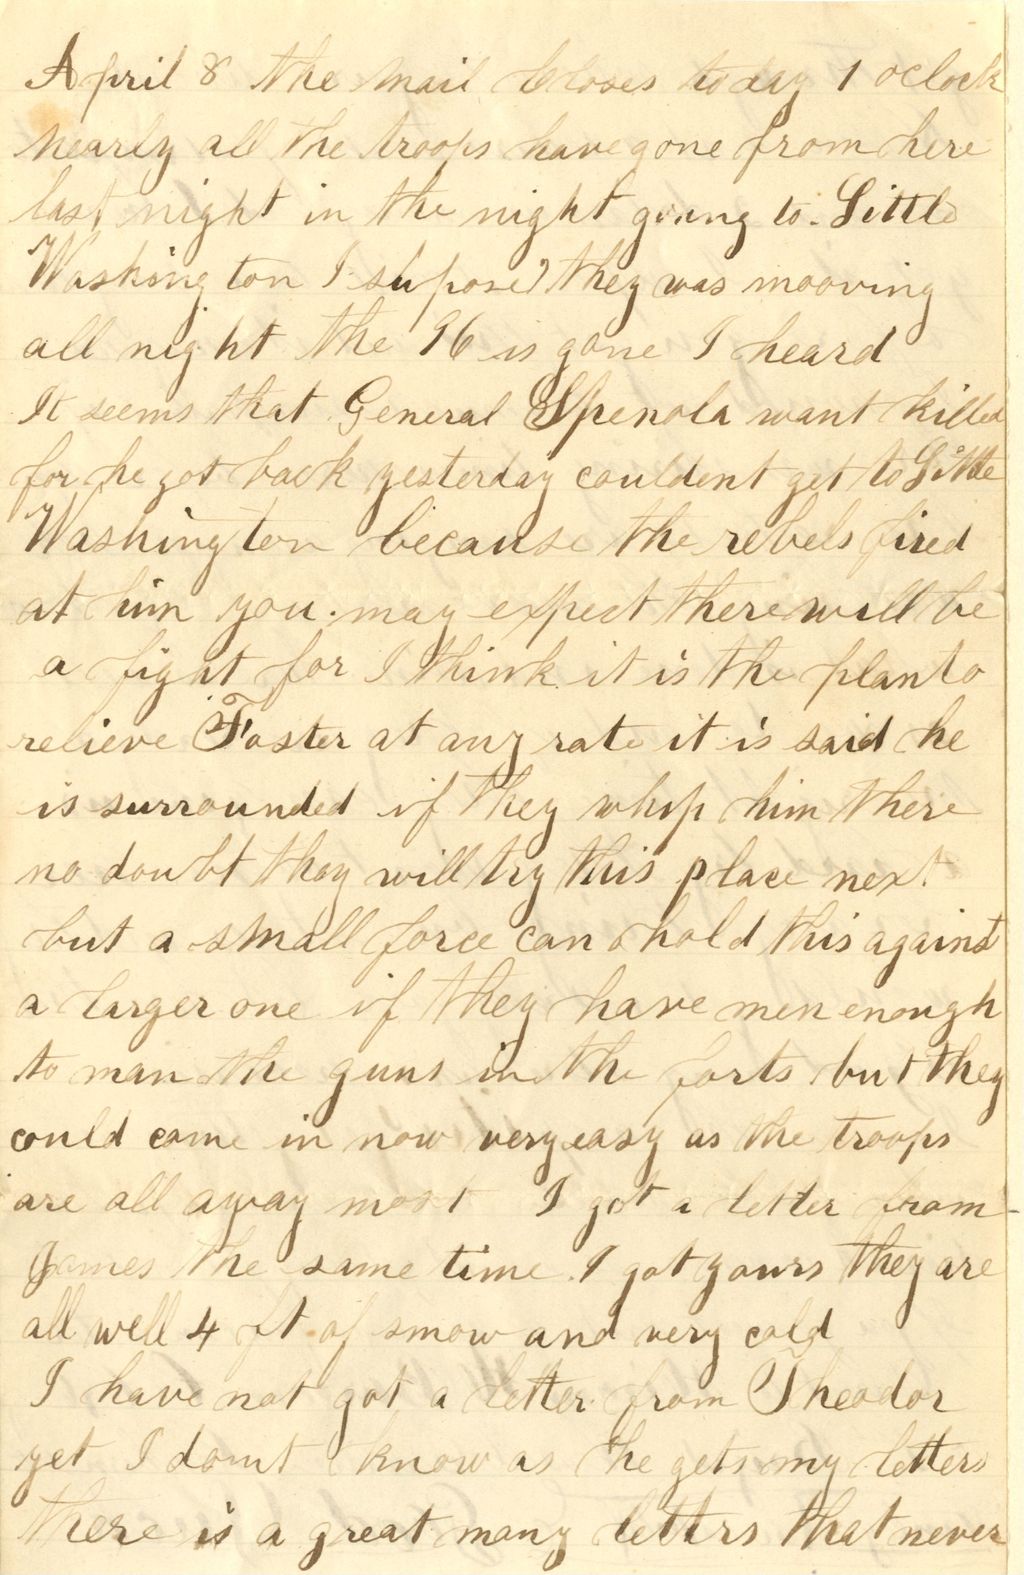 April 8 the mail closes today 1 oclock
nearly all the troops have gone from here
last night in the night going to Little
Washington I supose they was mooving
all night the 96 is gone I heard
It seems that General Spenola want killed
for he got back yesterday couldent get to Little
Washington because the rebels fired
at him you may expect there will be
a fight for I think it is the plan to
relieve Foster at any rate it is said he
is surrounded if they whip him there
no doubt they will try this place next
but a small force can hold this against
a larger one if they have men enough
to man the guns in the forts but they
could come in now very easy as the troops
are all away most I got a letter from
James the same time I got yours they are
all well 4 ft of snow and very cold
I have not got a letter from Theodor
yet I dont know as he gets my letters
there is a great many letters that never